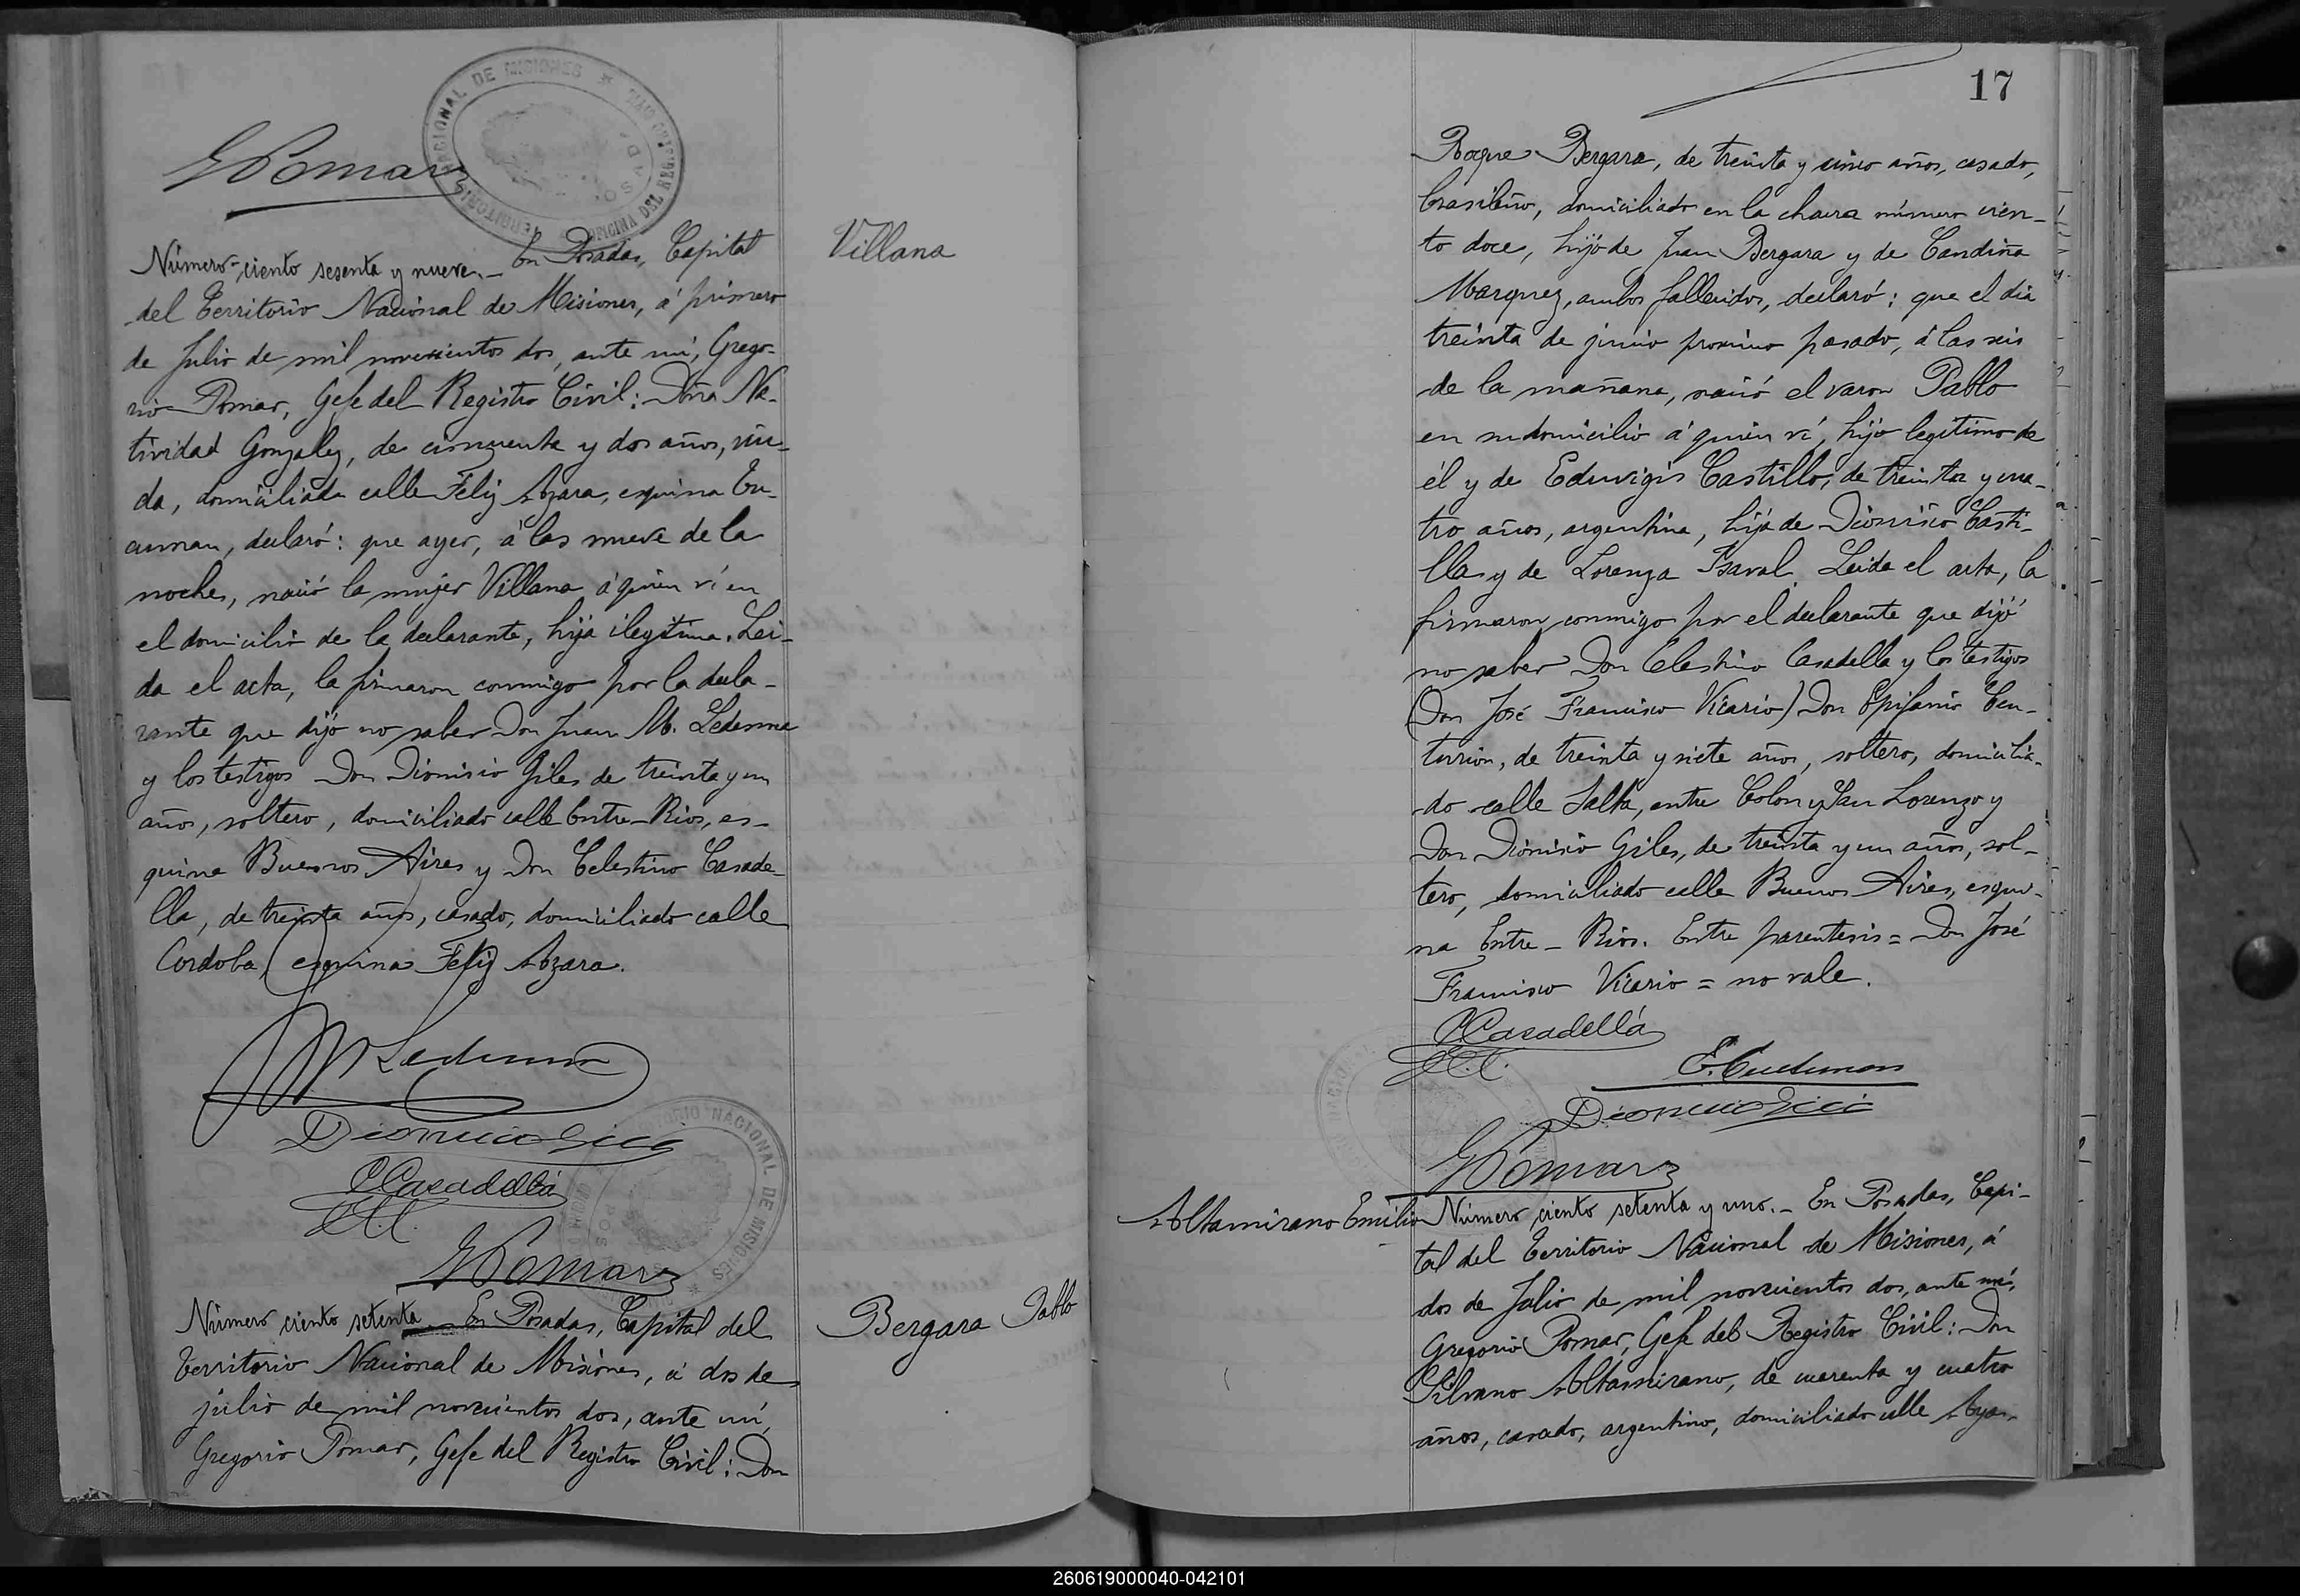 GPomar
TERRITORIO NACIONAL DE MISIONES
OFICINA DEL REGISTRO CIVIL
Número ciento sesenta y nueve.– En Posadas, Capital
del Territorio Nacional de Misiones, á primero
de Julio de mil novecientos dos, ante mí, Grego-
rio Pomar, Gefe del Registro Civil: Doña Na-
tividad Gonzalez, de cincuenta y dos años, viu-
da, domiciliada calle Feliz Azara, esquina Tu-
cuman, declaró: que ayer, á las nueve de la
noche, nació la mujer Villana á quien ví en
el domicilio de la declarante, hija ilegítima. Lei-
da el acta, la firmaron conmigo por la decla-
rante que dijo no saber Don Juan M. Ledesma
y los testigos Don Dionisio Giles de treinta y un
años, soltero, domiciliado calle Entre-Rios, es-
quina Buenos Aires y Don Celestino Casade-
lla, de treinta años, casado, domiciliado calle
Cordoba esquina Feliz Azara.
Villana
JMLedesma
Dionisio Giles
CCasadellá
GPomar
TERRITORIO NACIONAL DE MISIONES
Número ciento setenta.– En Posadas, Capital del
Territorio Nacional de Misiones, á dos de
julio de mil novecientos dos, ante mí,
Gregorio Pomar, Gefe del Registro Civil: Don
Bergara Pablo
17
Roque Bergara, de treinta y cinco años, casado,
brasileño, domiciliado en la chacra número cien-
to doce, hijo de Juan Bergara y de Candiña
Marquez, ambos fallecidos, declaró: que el dia
treinta de junio proximo pasado, á las seis
de la mañana, nació el varon Pablo
en su domicilio á quien ví, hijo legítimo de
él y de Eduvigis Castillo, de treinta y cua-
tro años, argentina, hija de Dionisio Casti-
lla y de Lorenza Isaval. Leida el acta, la
firmaron conmigo por el declarante que dijo
no saber Don Celestino Casadella y los testigos
(Don José Francisco Vicario) Don Epifanio Cen-
turion, de treinta y siete años, soltero, domicilia-
do calle Salta, entre Colon y San Lorenzo y
Don Dionisio Giles, de treinta y un años, sol-
tero, domiciliado calle Buenos Aires, esqui-
na Entre-Rios. Entre parentesis = Don José
Francisco Vicario = no vale.
CCasadellá
Dionisio Giles
GPomar
Altamirano Emilio
Número ciento setenta y uno.– En Posadas, Capi-
tal del Territorio Nacional de Misiones, á
dos de Julio de mil novecientos dos, ante mí,
Gregorio Pomar, Gefe del Registro Civil: Don
Silvano Altamirano, de cuarenta y cuatro
años, casado, argentino, domiciliado calle Aya-
260619000040-042101